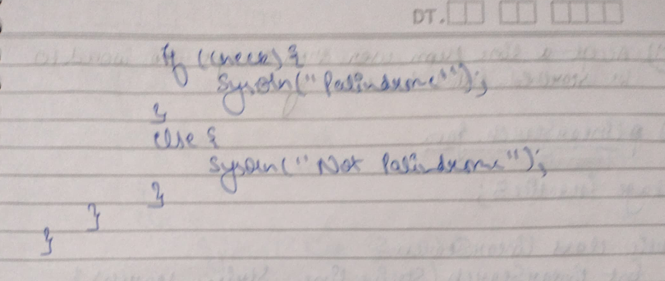 DT.
if (check) {
Sysoln("Palindrome");
}
else {
Sysoln("Not Palindrome");
}
}
}